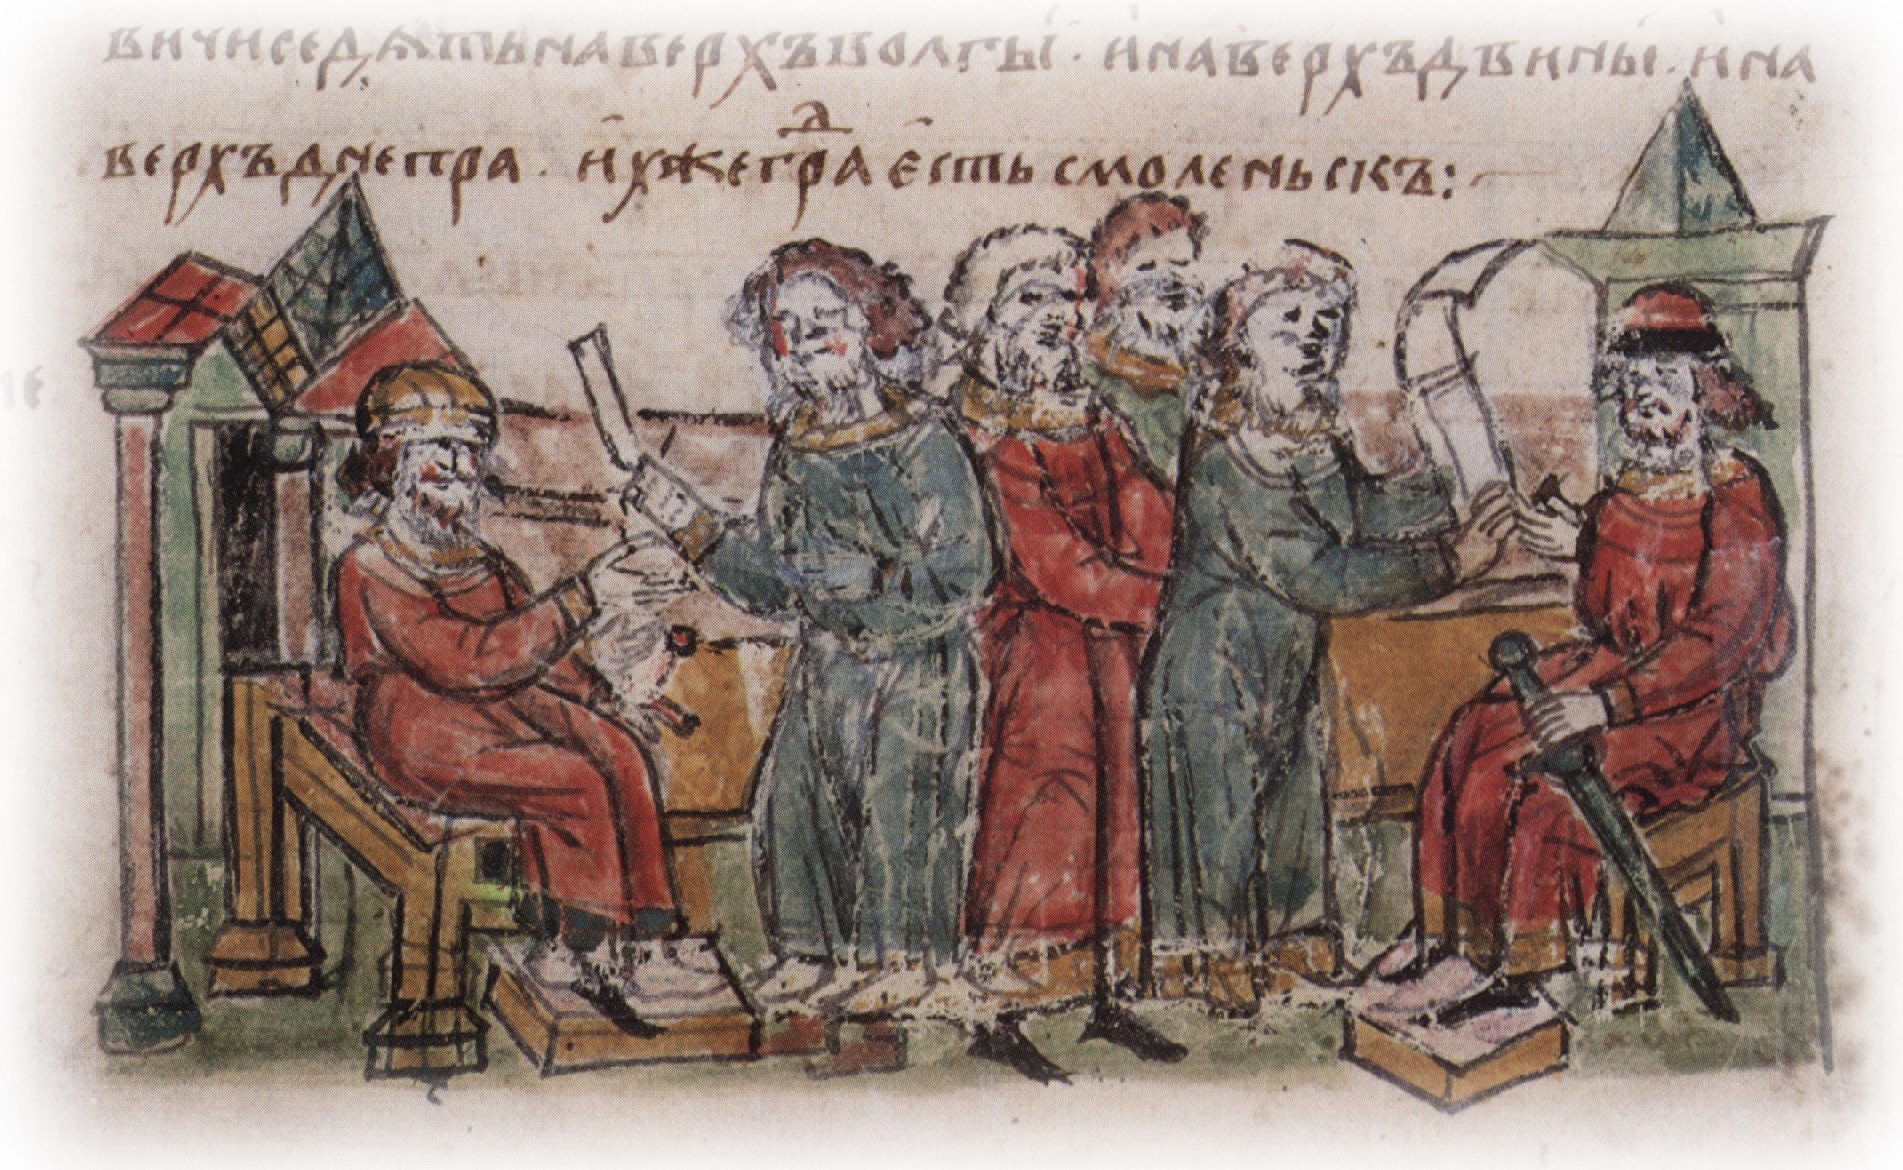 вичиседѧтьнаверхъволгы · инаверхъдвины · ина
верхъднепра · иꙋжегра́ⷣестьсмоленьскъ: